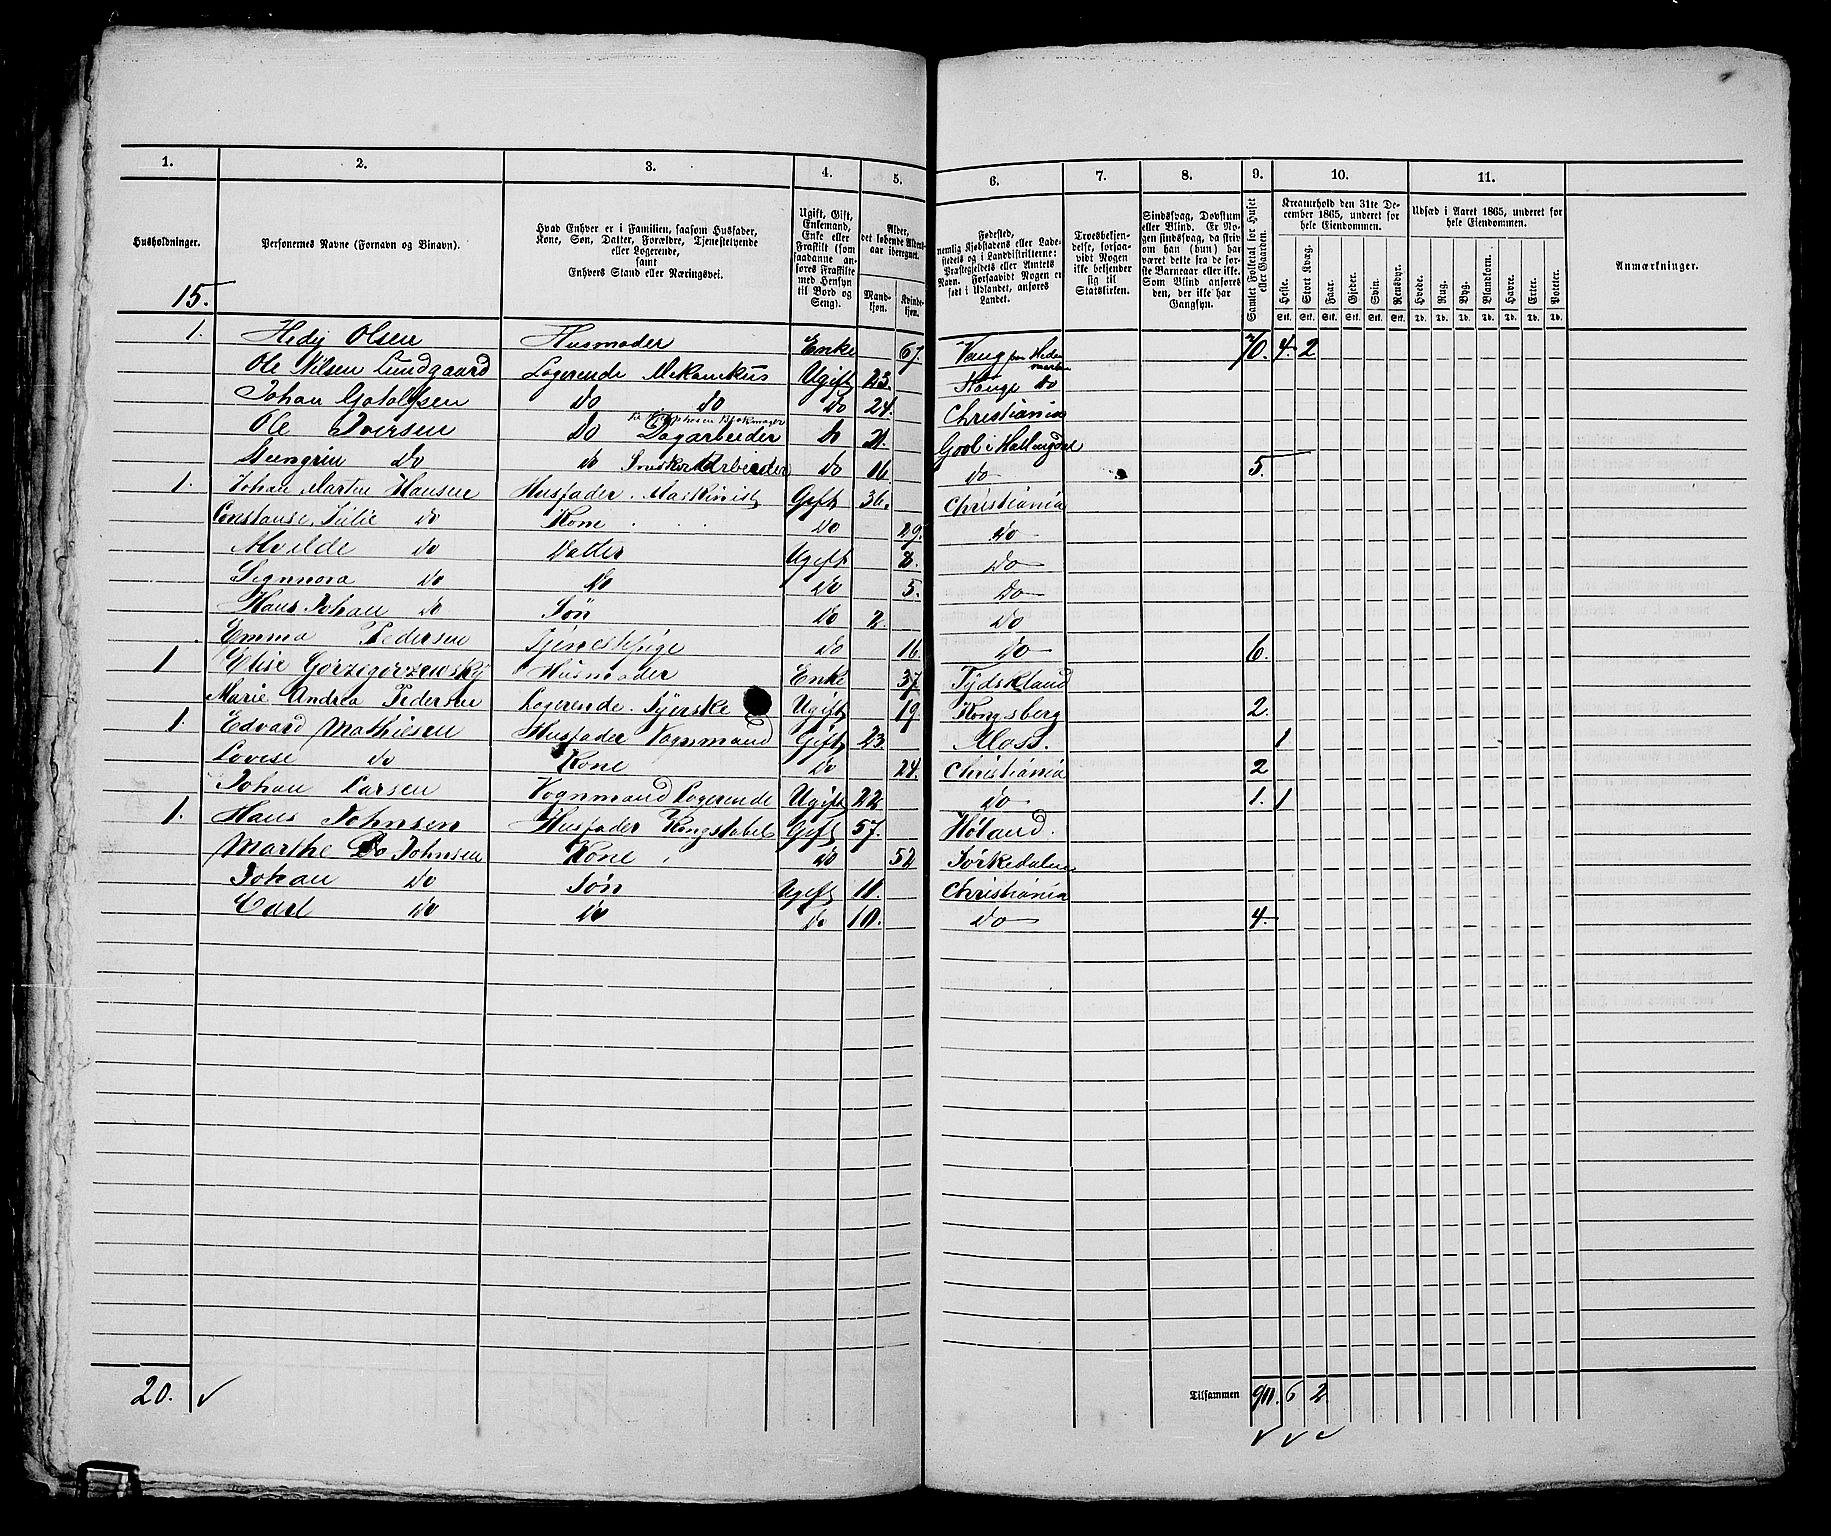 1. 2. 3. 4. 5. 6. 7. 8. 9. 10. 11.
Husholdninger.
Personernes Navne (Fornavn og Binavn).
Hvad Enhver er i Familien, saasom Husfader,
Kone, Søn, Datter, Forældre, Tjenestetyende
eller Logerende,
samt
Enhvers Stand eller Næringsvei.
Ugift, Gift,
Enkemand,
Enke eller
Fraskilt (som
saadanne an-
føres Fraskilte
med Hensyn
til Bord og
Seng).
Alder,
det løbende Alders-
aar iberegnet.
Mand-
kjøn.
Kvinde-
kjøn.
Fødested,
nemlig Kjøbstadens eller Lade-
stedets og i Landdistrikterne:
Præstegjeldets eller Amtets
Navn. Forsaavidt Nogen er
født i Udlandet, anføres
Landet.
Troesbekjen-
delse, forsaa-
vidt Nogen
ikke bekjender
sig til
Statskirken.
Sindssvag, Døvstum
eller Blind. Er No-
gen sindssvag, da skriv
om han (hun) har
været dette fra de før-
ste Barneaar eller ikke.
Som Blind anføres
den, der ikke har
Gangsyn.
Samlet Folketal for Huset
eller Gaarden.
Kreaturhold den 31te De-
cember 1865, underet for
hele Eiendommen.
Heste. Stort Kvæg. Faar. Gjeder. Svin. Rensdyr.
Stk. Stk. Stk. Stk. Stk. Stk.
Udsæd i Aaret 1865, underet for
hele Eiendommen.
Hvede. Rug. Byg. Blandkorn. Havre. Erter. Poteter.
Td. Td. Td. Td. Td. Td. Td.
Anmærkninger.
15.
1. Olsen Husmoder Enke 67. Vang 70. 4 2
Ole Nilsen Lundgaard Logerende Mekanikus Ugift 23. do
Johan do do do 24. Christiania
Ole Iversen do Dagarbeider do 21. Gool i Hallingdal
do do do 16 do 5.
1. Johan Martin Hansen Husfader. Maskinist Gift 36. Christiania
Constanse Julie do Kone do 29. do
do Datter Ugift 8. do
Signnora do do do 5. do
Hans Johan do Søn do 2. do
Emma Pedersen Tjenestepige do 16 do 6.
1 Elise Gorzegorzewsky Husmoder Enke 37 Tydskland
Marie Andrea Pedersen Logerende. Syerske Ugift 19 Kongsberg 2.
1. Edvard Mathiesen Husfader Vognmand Gift 23. Moss. 1
Lovise do Kone do 24. Christiania 2
Johan Larsen Vognmand Logerende Ugift 22 do 1. 1
1. Hans Johnsen Husfader Kongstabel Gift 57. Høland.
Marthe Johnsen Kone do 52 Sørkedalen
Johan do Søn Ugift 11. Christiania
Carl do do do 10. do 4.
20.
Tilsammen 90. 6 2